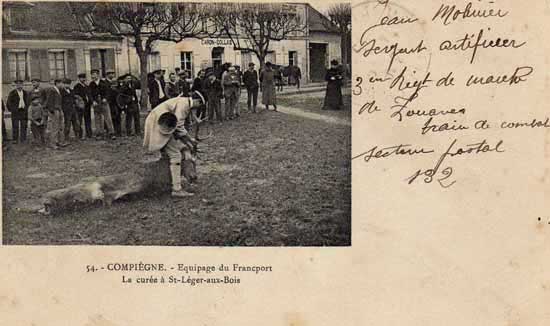 CARON-DOLLAR
Jean Molinier
Sergent artificier
3 em Regt de marche
de Zouaves
train de combat
secteur postal
132
54. - COMPIÈGNE. - Equipage du Francport
La curée à St-Léger-aux-Bois